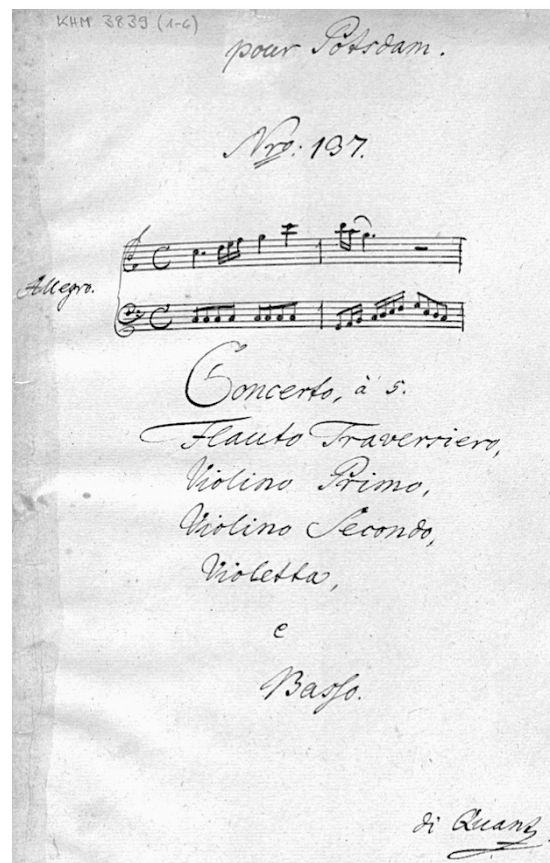 KHM 3839 (1-6)
pour Potsdam.
Nro: 137.
Allegro.
Concerto, à 5.
Flauto Traversiero,
Violino Primo,
Violino Secondo,
Violetta,
e
Basso.
di Quantz.